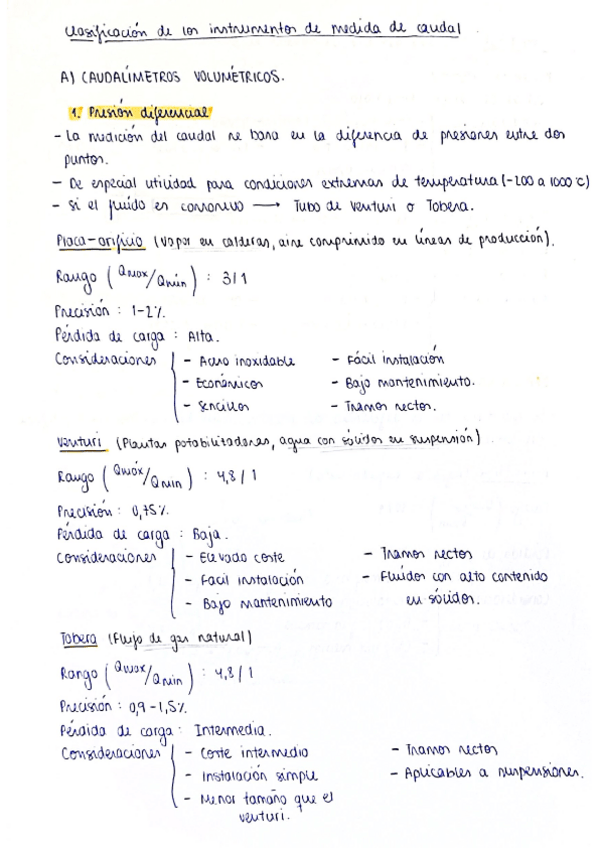 Clasificación de los instrumentos de medida de caudal.
A) CAUDALÍMETROS VOLUMÉTRICOS.
1. Presión diferencial
- La medición del caudal se basa en la diferencia de presiones entre dos
puntos.
- De especial utilidad para condiciones extremas de temperatura (-200 a 1000ºC)
- Si el fluido es corrosivo → Tubo de Venturi o Tobera.
Placa-orificio (Vapor en calderas, aire comprimido en líneas de producción).
Rango (Qmax/Qmín) : 3/1
Precisión : 1-2%.
Pérdida de carga : Alta.
Consideraciones - Acero inoxidable - Fácil instalación
- Económicos - Bajo mantenimiento.
- Sencillos - Tramos rectos.
Venturi (Plantas potabilizadoras, agua con sólidos en suspensión)
Rango (Qmáx/Qmin) : 4,8/1
Precisión : 0,75%.
Pérdida de carga : Baja.
Consideraciones - Elevado coste - Tramos rectos
- Facil instalación - Fluidos con alto contenido
- Bajo mantenimiento en sólidos.
Tobera (Flujo de gas natural)
Rango (Qmax/Qmin) : 4,8/1
Precisión : 0,9-1,5%.
Pérdida de carga : Intermedia.
Consideraciones - Coste intermedio - Tramos rectos
- Instalación simple - Aplicables a suspensiones.
- Menor tamaño que el
venturi.